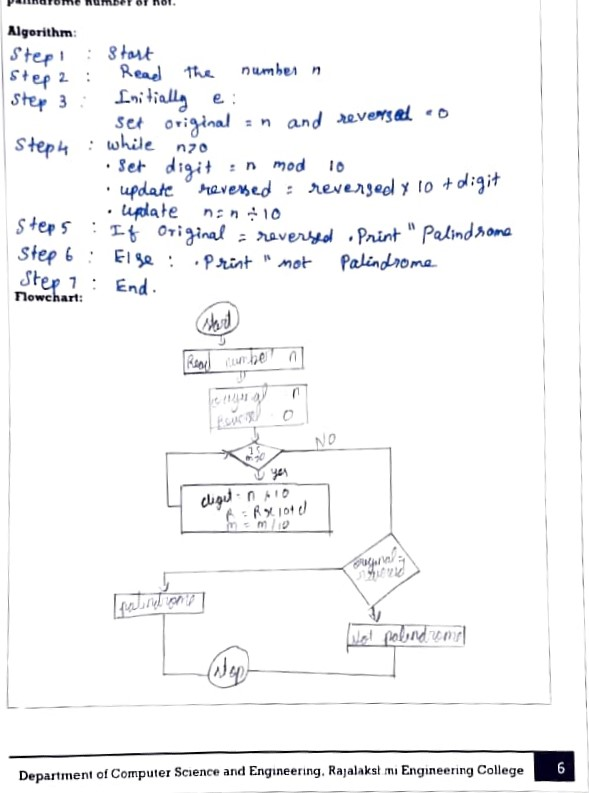 palindrome number or not.
Algorithm:
Step 1 : Start
Step 2 : Read the number n
Step 3 : Initially e:
Set original = n and reversed = 0
Step 4 : while n>0
• Set digit = n mod 10
• update reversed = reversed x 10 + digit
• update n = n ÷ 10
Step 5 : If Original = reversed . Print " Palindrome
Step 6 : Else : . Print " not Palindrome
Step 7 : End.
Flowchart:
Start
Read number n
original n
0
NO
Is
yes
digit = n
R = R x 10 + d
original =
palindrome
Not palindrome
Stop
Department of Computer Science and Engineering, Rajalakshmi Engineering College 6